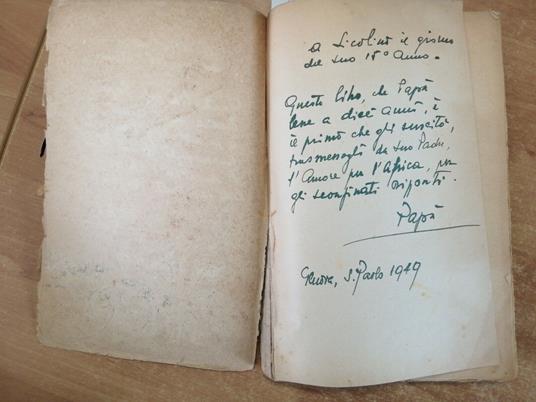 a Licolino il giorno
del suo 15° Anno.
Questo libro, che Papà
lesse a dieci anni, è
il primo che gli suscitò,
trasmessogli da suo Padre,
l'Amore per l'Africa, per
gli sconfinati orizzonti.
Papà
S. Paolo 1949